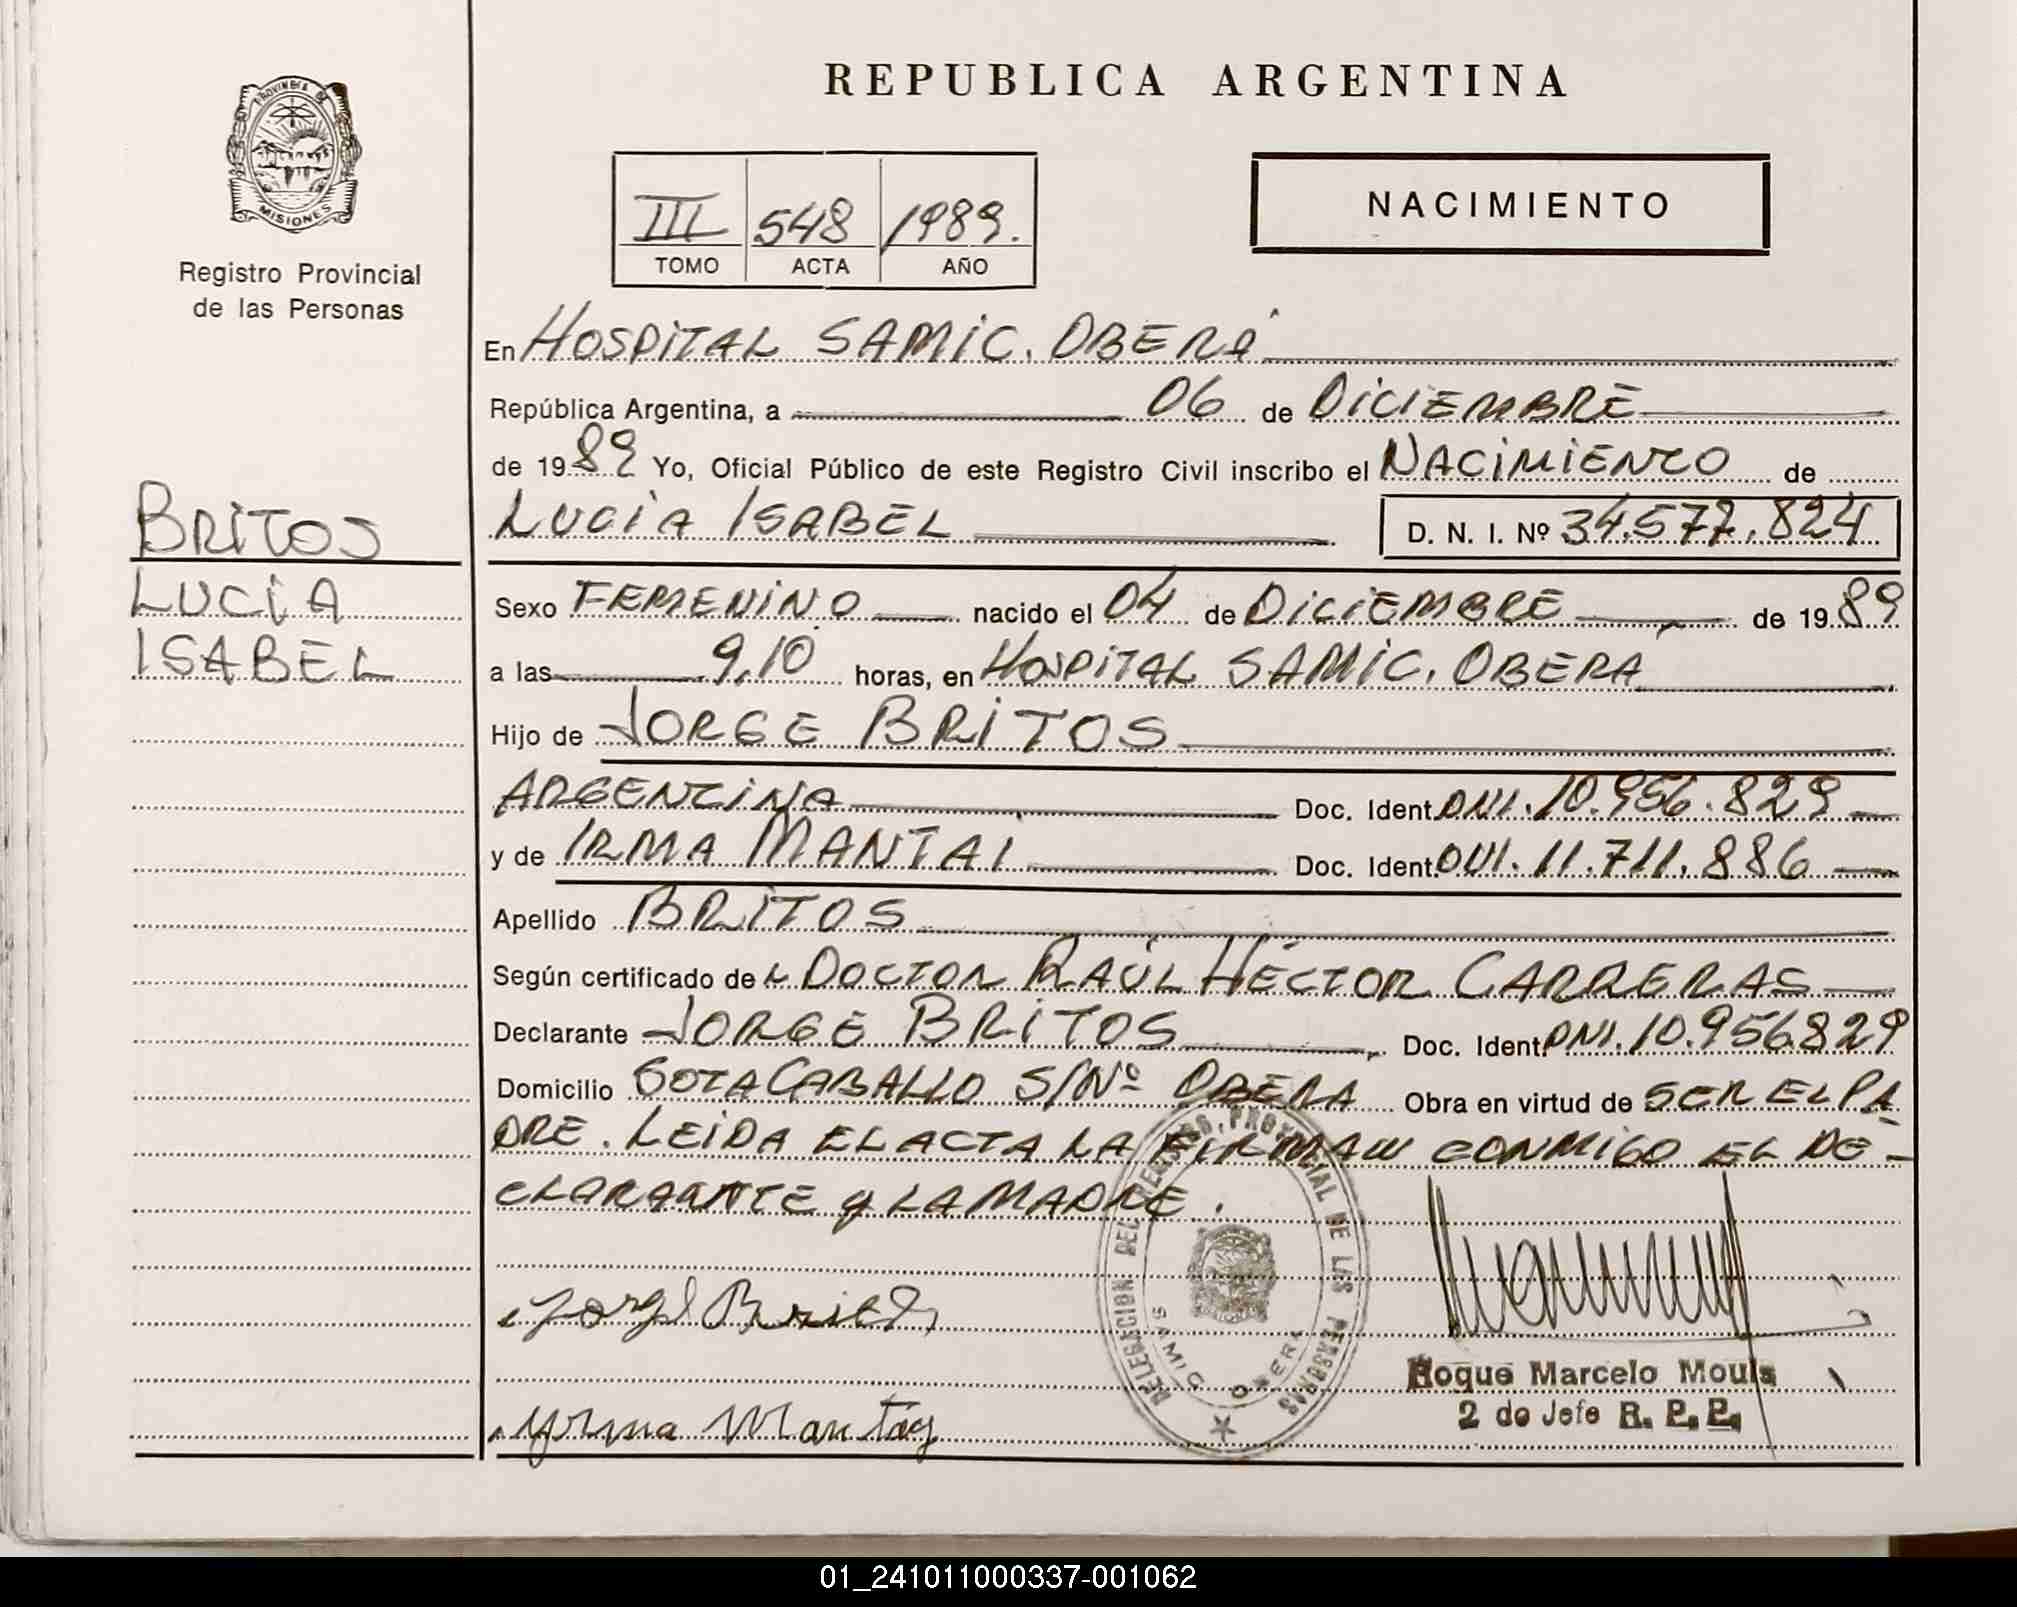 REPUBLICA ARGENTINA
PROVINCIA DE
MISIONES
Registro Provincial
de las Personas
III 548 1989.
TOMO ACTA AÑO
NACIMIENTO
En HOSPITAL SAMIC. OBERÁ
República Argentina, a 06 de DICIEMBRE
de 1989 Yo, Oficial Público de este Registro Civil inscribo el NACIMIENTO de
LUCIA ISABEL D. N. I. Nº 34.577.824
BRITOS
LUCIA
ISABEL
Sexo FEMENINO nacido el 04 de DICIEMBRE de 1989
a las 9,10 horas, en HOSPITAL SAMIC. OBERA
Hijo de JORGE BRITOS
ARGENTINA Doc. Ident. DNI. 10.956.829
y de IRMA MANTAI Doc. Ident. DNI. 11.711.886
Apellido BRITOS
Según certificado de L DOCTOR RAÚL HÉCTOR CARRERAS
Declarante JORGE BRITOS Doc. Ident. DNI. 10.956829
Domicilio GOTA CABALLO S/Nº OBERA Obra en virtud de SER EL PA
DRE. LEIDA EL ACTA LA FIRMAN CONMIGO EL DE-
CLARANTE Y LA MADRE.
DELEGACION DEL REGISTRO PROVINCIAL DE LAS PERSONAS
SAMIC OBERA
Jorge Britos
Yrma Mantay
Roque Marcelo Mouls
2 do Jefe R. P. P.
01_241011000337-001062